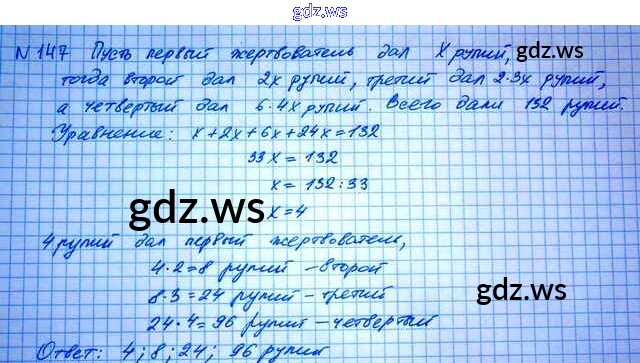 gdz.ws
N 147 Пусть первый жертвователь дал x рупий,
gdz.ws
тогда второй дал 2x рупий, третий дал 2·3x рупий,
а четвертый дал 6·4x рупий. Всего дали 132 рупий.
Уравнение: x+2x+6x+24x=132
33x=132
x=132:33
gdz.ws
x=4
4 рупий дал первый жертвователь,
4·2=8 рупий - второй
8·3=24 рупий - третий
gdz.ws
24·4=96 рупий - четвертый
Ответ: 4; 8; 24; 96 рупий